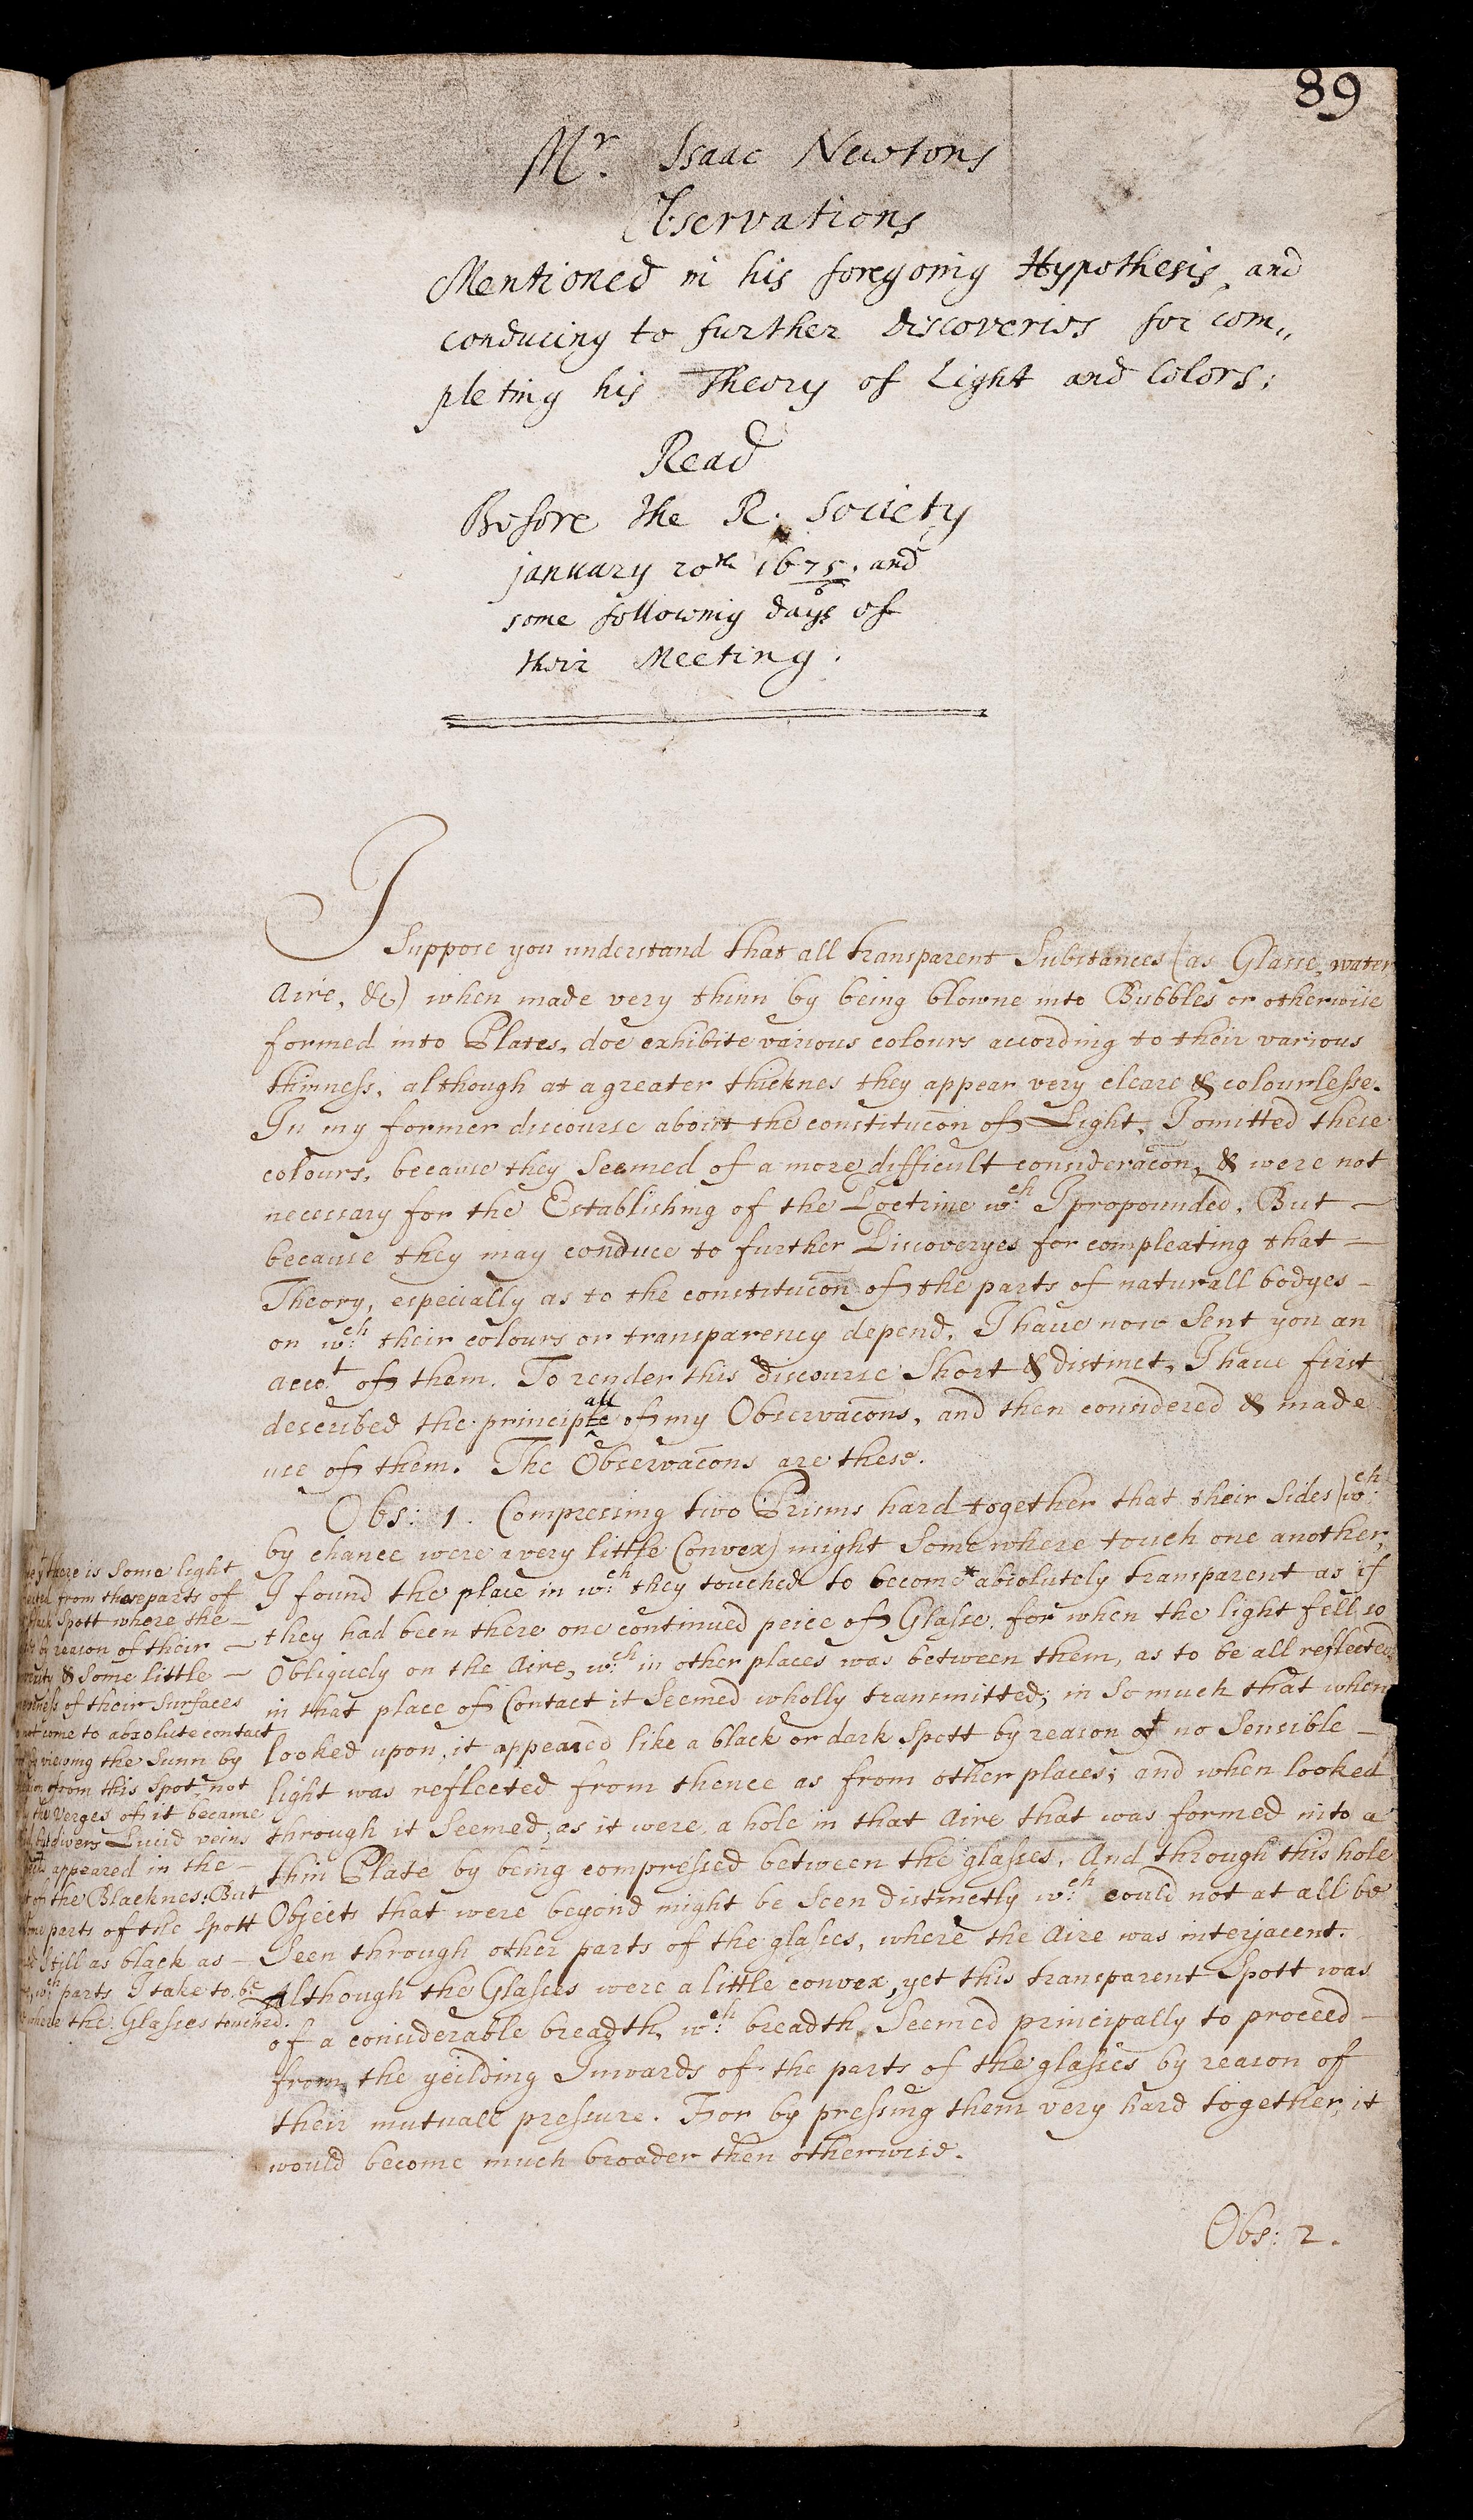 89
Mr. Isaac Newtons
Observations
Mentioned in his foregoing Hypothesis, and
conducing to further discoveries for com,,
pleting his Theory of Light and Colors;
Read
Before the R. Society
january 20th 1675/6. and
some following days of
their Meeting.
I Suppose you understand that all transparent Substances (as Glasse, water
Aire, &c) when made very thinn by being blowne into Bubbles or otherwise
formed into Plates, doe exhibite various colours according to their various
thinness, although at a greater thicknes they appear very cleare & colourlesse.
In my former discourse about the constitucōn of Light, I omitted these
colours, because they Seemed of a more difficult consideracōn, & were not
necessary for the Establishing of the Doctrine wch. I propounded. But –
because they may conduce to further Discoveryes for compleating that –
Theory, especially as to the constitucōn of the parts of naturall bodyes –
on wch. their colours or transparency depend, I haue now Sent you an
accot. of them. To render this discourse Short & distinct, I haue first
described the principall of my Observacōns, and then considered & made
use of them. The Observacōns are these.
Obs: 1. Compressing two Prisms hard together that their Sides (wch.
by chance were a very little Convex) might Somewhere touch one another,
I found the place in wch. they touched to become * absolutely transparent as if
they had been there one continued peice of Glasse. for when the light fell so
Obliquely on the Aire, wch. in other places was between them, as to be all reflected,
in that place of Contact it Seemed wholly transmitted; in So much that when
looked upon, it appeared like a black or dark Spott by reason of no Sensible –
light was reflected from thence as from other places; and when looked
through it Seemed, as it were, a hole in that Aire that was formed into a
thin Plate by being compressed between the glasses. And through this hole
Objects that were beyond might be Seen distinctly wch. could not at all be
Seen through other parts of the glasses, where the Aire was interjacent.
Although the Glasses were a little convex, yet this transparent Spott was
of a considerable breadth, wch. breadth Seemed principally to proceed –
from the yeilding Inwards of the parts of the glasses by reason of
their mutuall pressure. For by pressing them very hard together, it
would become much broader then otherwise.
there is Some light
from those parts of
Spott where the –
by reason of their –
& Some little –
of their Surfaces
come to absolute contact
viewing the Sunn by
from this Spot, not
the Verges of it became
divers Lucid veins
appeared in the –
of the Blacknes: But
parts of the Spott
Still as black as –
wch. parts I take to be
where the Glasses touched.
Obs: 2.